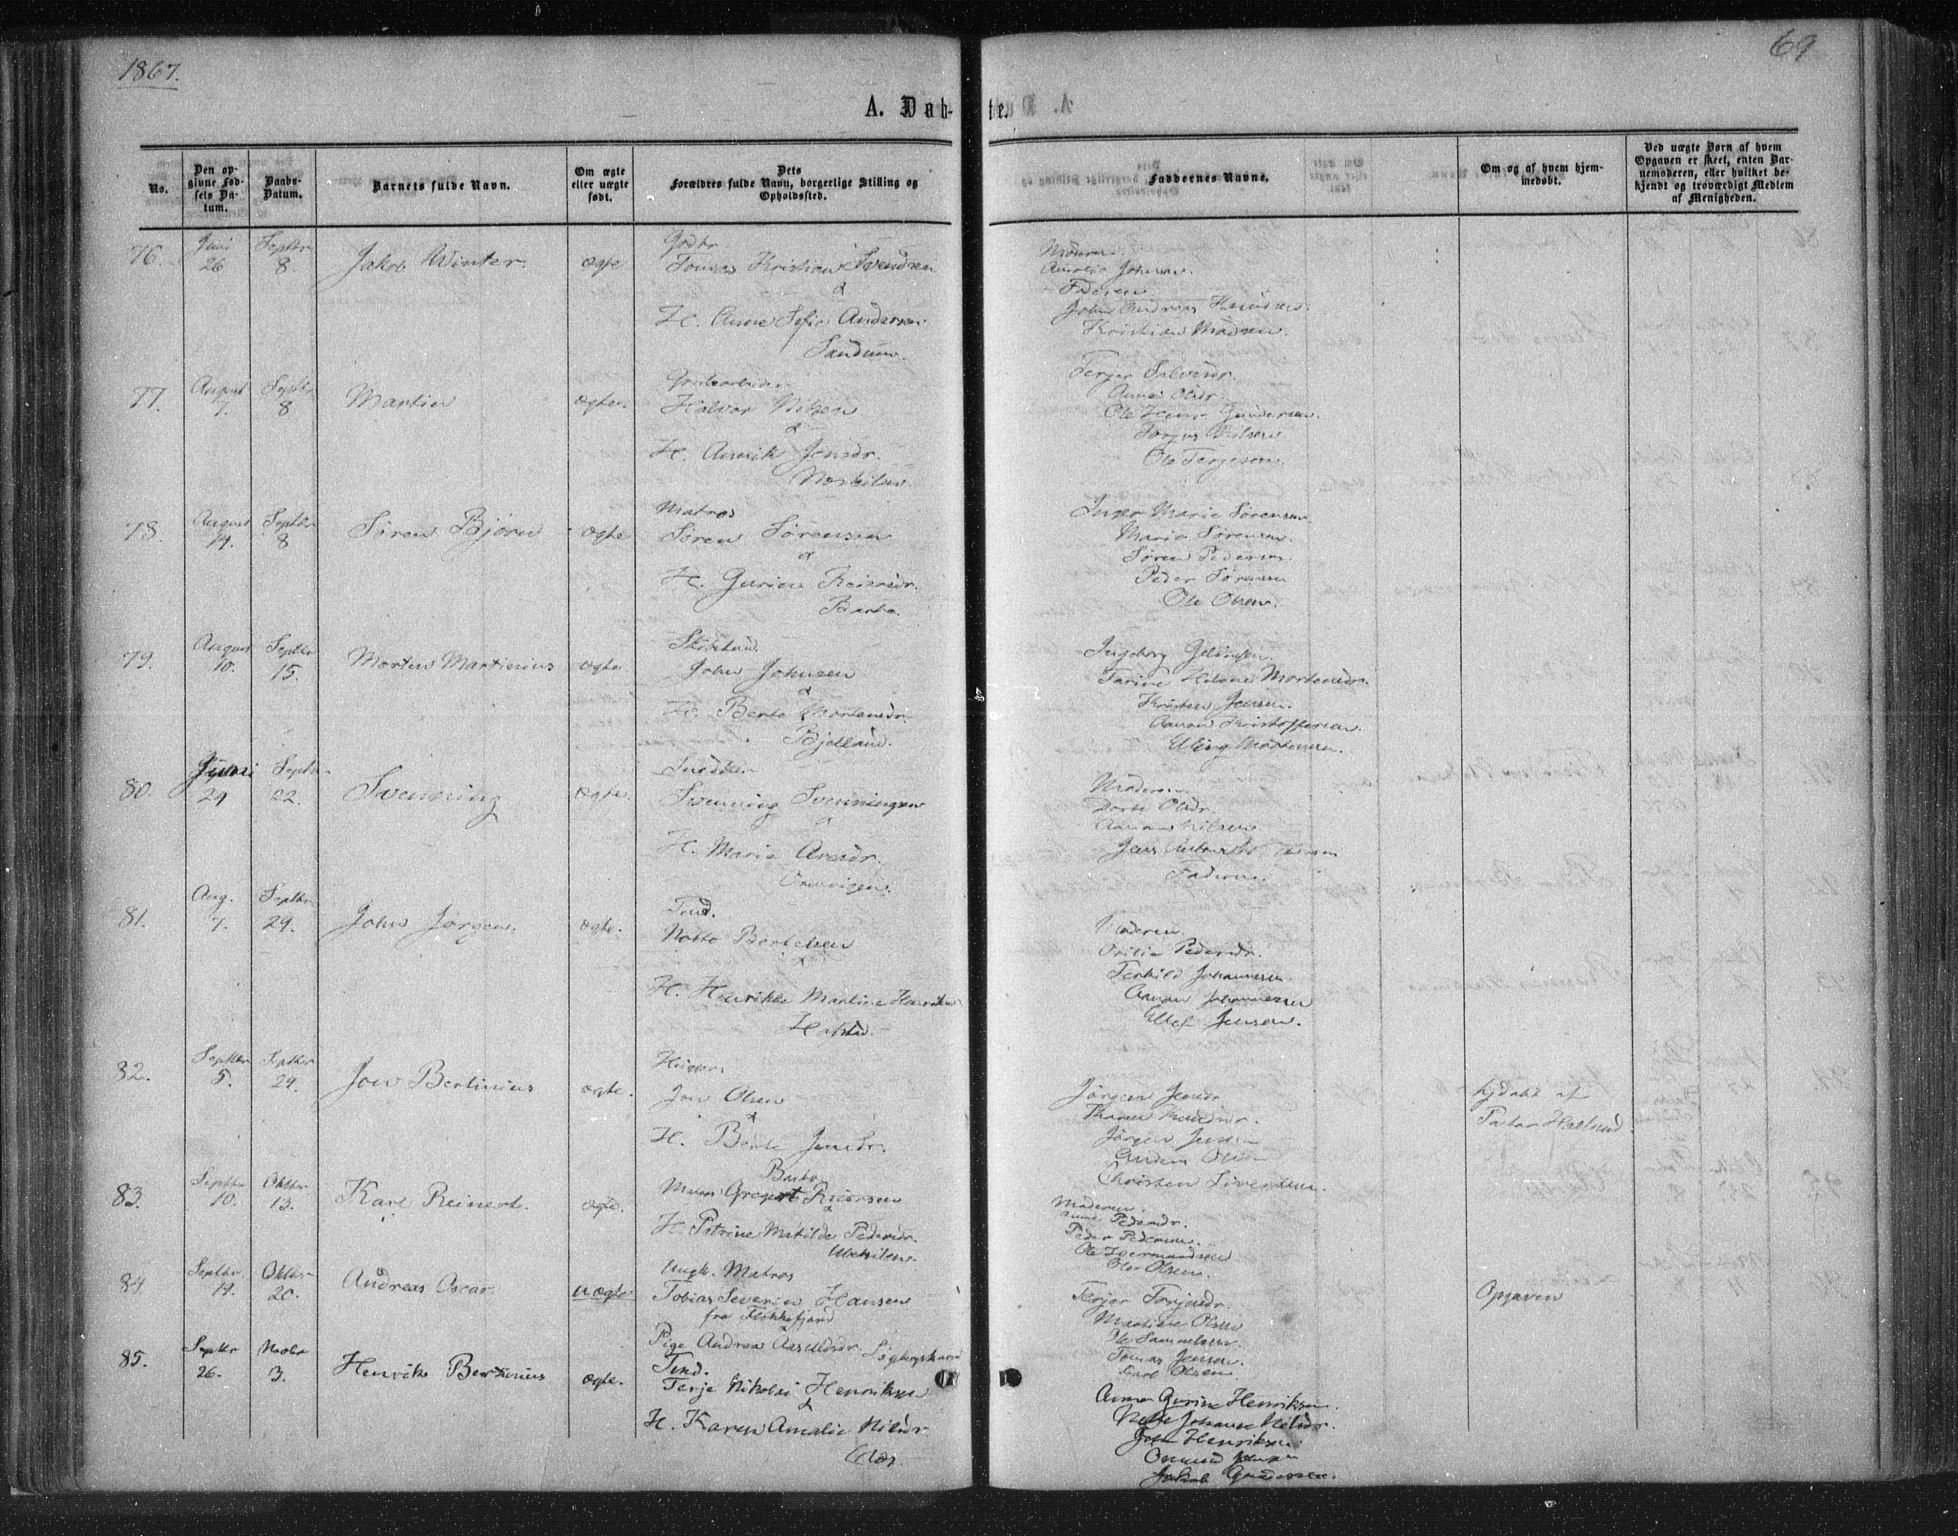 1867.
69
A. Døb-
te.
No.
Den op-
givne Fød-
sels Da-
tum.
Daabs-
Datum.
Barnets fulde Navn.
Om ægte
eller uægte
født.
Dets
Forældres fulde Navn, borgerlige Stilling og
Opholdssted.
Faddernes Navne.
Om og af hvem hjem-
medøbt.
Ved uægte Børn af hvem
Opgaven er skeet, enten Bar-
nemoderen, eller hvilket be-
kjendt og troværdigt Medlem
af Menigheden.
76.
Juni
26
Septbr
8.
Jakob Winter.
ægte
Tomas Kristian Svendsen
&
H. Anne Sofie Andersen
Moderen.
Amalie Johnsen.
Faderen
John Andreas Knudsen.
Kristian Madsen.
77.
August
7.
Septbr
8
Martin
ægte.
Halvor Nilsen
&
H. Annik Jensdr.
Terjer Salvesdr.
Anne Olsdr.
Ole Gundersen.
Torjus Nilsen
Ole Terjesen.
78.
August
14.
Septbr
8
Sören Bjørn
ægte
Matros
Sören Sörensen
&
H. Gurine Reiersdr.
Barbo.
Inger Marie Sörensen
Marie Sörensen.
Sören Pedersen.
Peder Sörensen
Ole Olsen.
79.
August
10.
Septbr
15.
Morten Martinius
ægte.
John Johnsen
&
H. Berte Mortensdr.
Bjelland.
Ingeborg
Tarine Helene Mortensdr.
Kristen Jensen.
Aanon Kristoffersen.
Elling Mortensen.
80.
Juni
24
Septbr
22.
Svenning
ægte.
Snedker
Svenning Svenningsen
&
H. Marie Arnesdr.
Moderen
Dorte Olsdr.
Aanon Nilsen.
Jens
Faderen.
81.
Aug.
7.
Septbr
29.
John Jørgen.
ægte.
Tmd.
Notto Bertelsen
&
H. Henrikke Martine Henriksen
Moderen.
Otilie Pedersdr.
Terkild Johannesen.
Aanon Johannessen
Ellef Jensen.
82.
Septbr
5.
Septbr
29.
Jon Bertinius
ægte.
Jon Olsen
&
H. Berte Jensdr.
Barbo
Jörgen Jensdr.
Jörgen Jensen
Anders Olsen
Christen Sivertsen.
hjdøbt af
Pastor
83.
Septbr
10.
Oktbr
13.
Karl Reinert.
ægte.
Gregert Reiersen
&
H. Petrine Matilde Pedersdr.
Moderen.
Anne Pedersdr.
Peder Pedersen.
Ole Hermandsen
Olsen.
84.
Septbr
14.
Oktbr
20.
Andreas Oscar
uægte
Ungk. Matros
Tobias Severin Hansen
fra Flekkefjord
Pige Andrea Aasulfsdr.
Terjer Torjusdr.
Martine Olsen
Ole Samuelsen.
Tomas Jensen.
Carl Olsen.
Opgaven
85.
Septbr
26.
Novbr
3.
Henrik Bertinius
ægte.
Tmd.
Terje Nikolai Henriksen
&
H. Karen Amalie Nilsdr.
Anne Gurine Henriksen.
Johanne Nilsdr.
John Henriksen
Omund
Jakob Gundersen.